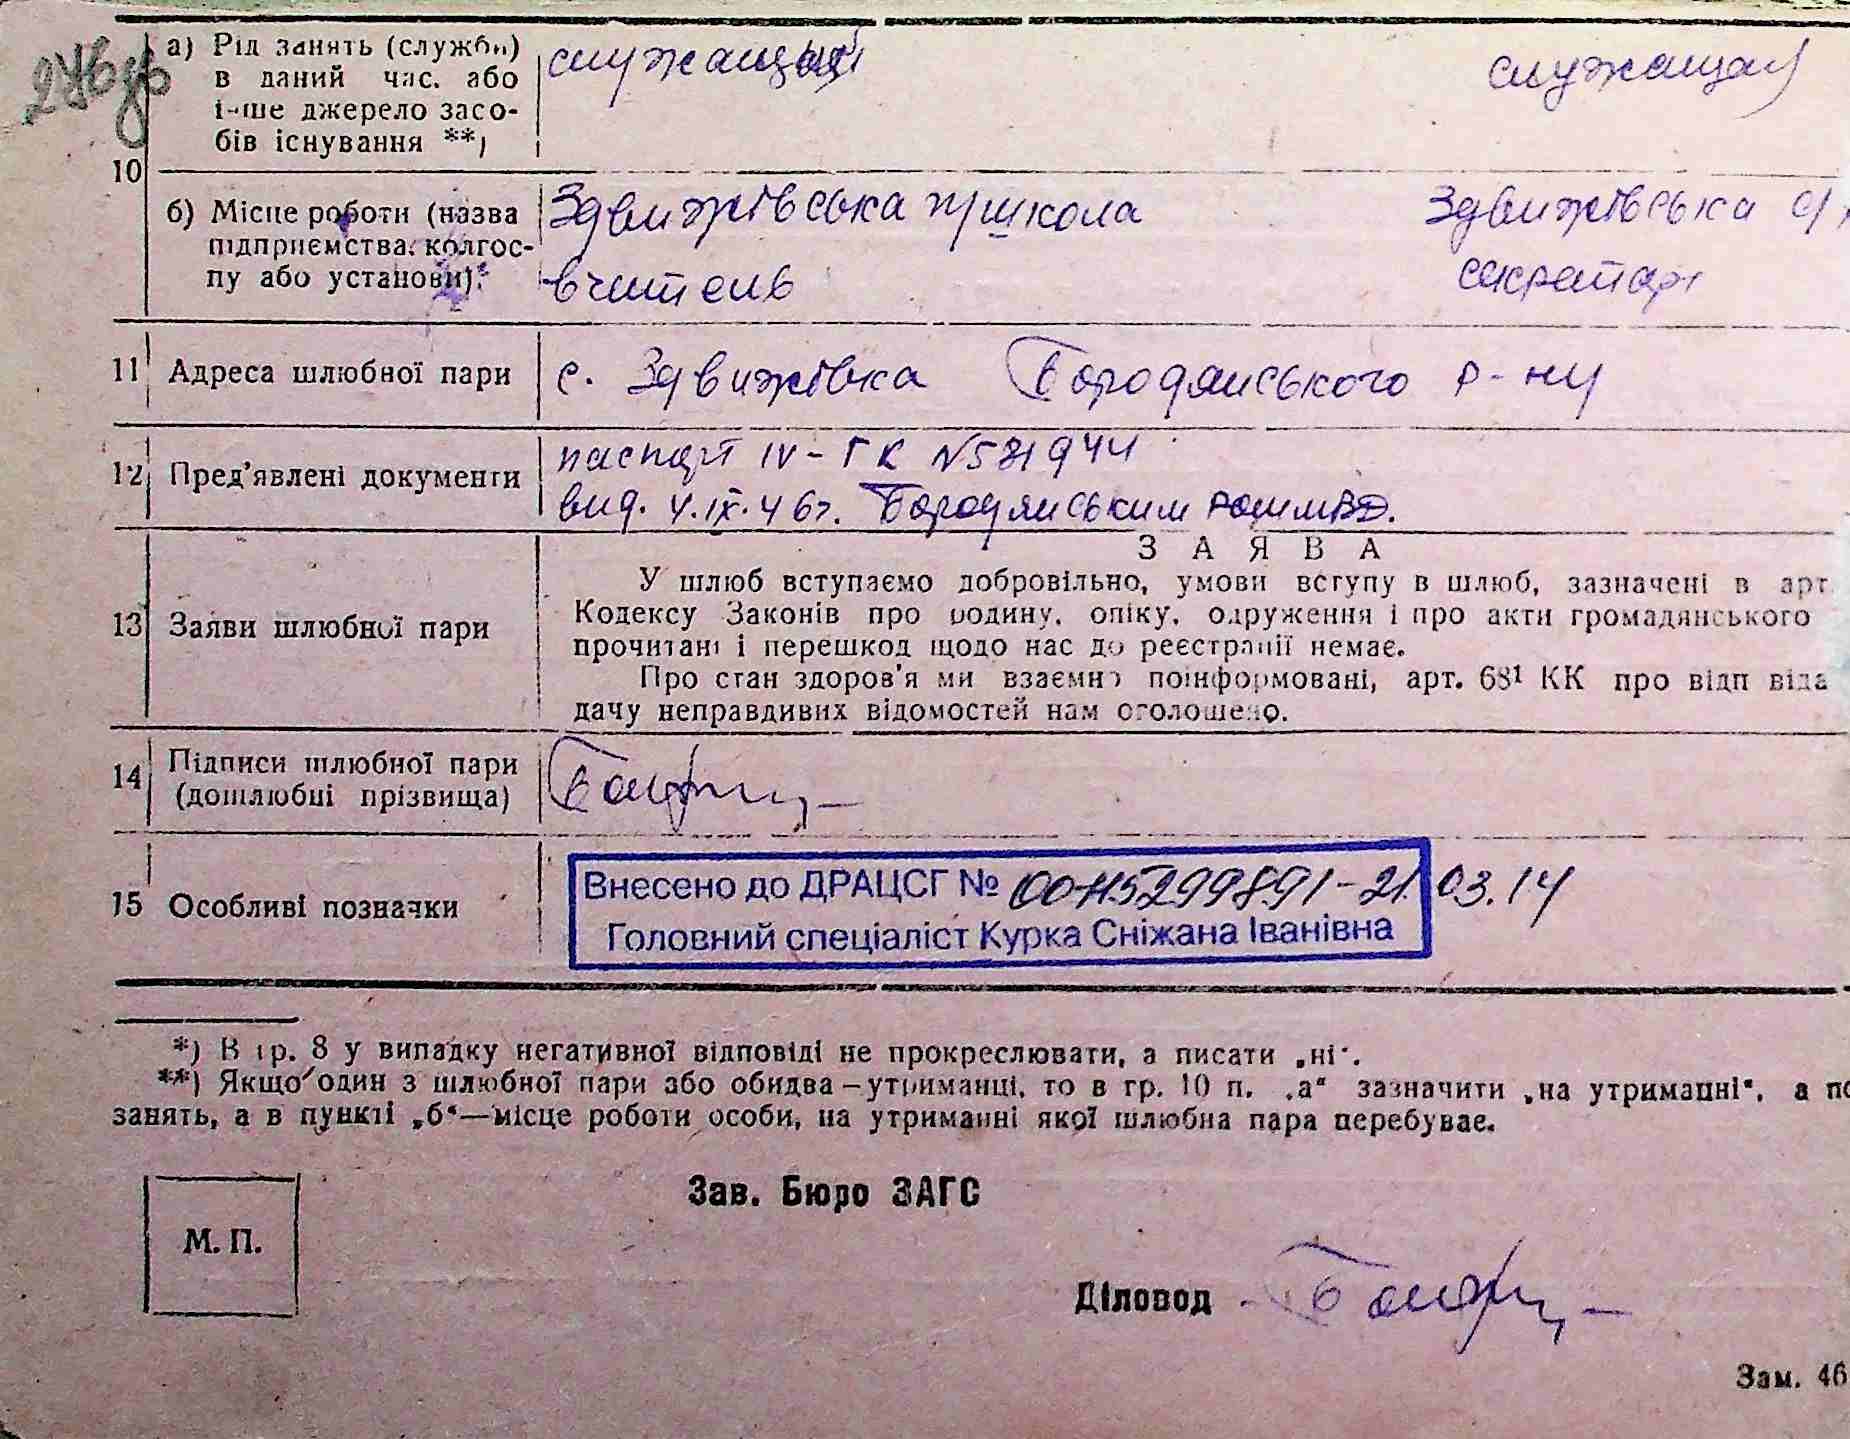 а) Рід занять (служби) служащий служащая
в даний час, або
інше джерело засо-
бів існування **)
10
б) Місце роботи (назва Здвижівська школа Здвижівська
підприємства, колгос-
пу або установи). вчитель секретар
11 Адреса шлюбної пари с. Здвижівка Бородянського р-ну
паспорт IV-ГК №581944
12 Пред'явлені документи
вид. 4.IX.46г. Бородянським
ЗАЯВА
У шлюб вступаємо добровільно, умови вступу в шлюб, зазначені в арт.
Кодексу Законів про родину, опіку, одруження і про акти громадянського
13 Заяви шлюбної пари
прочитані і перешкод щодо нас до реєстрації немає.
Про стан здоров'я ми взаємно поінформовані, арт. 68¹ КК про відп віда
дачу неправдивих відомостей нам оголошено.
14 Підписи шлюбної пари
(дошлюбні прізвища)
Внесено до ДРАЦСГ № 00115299891-21.03.14
15 Особливі позначки
Головний спеціаліст Курка Сніжана Іванівна
*) В гр. 8 у випадку негативної відповіді не прокреслювати, а писати „ні".
**) Якщо один з шлюбної пари або обидва—утриманці, то в гр. 10 п. „а" зазначити „на утриманні", а по
занять, а в пункті „б"—місце роботи особи, на утриманні якої шлюбна пара перебуває.
Зав. Бюро ЗАГС
М. П.
Діловод
Зам. 46